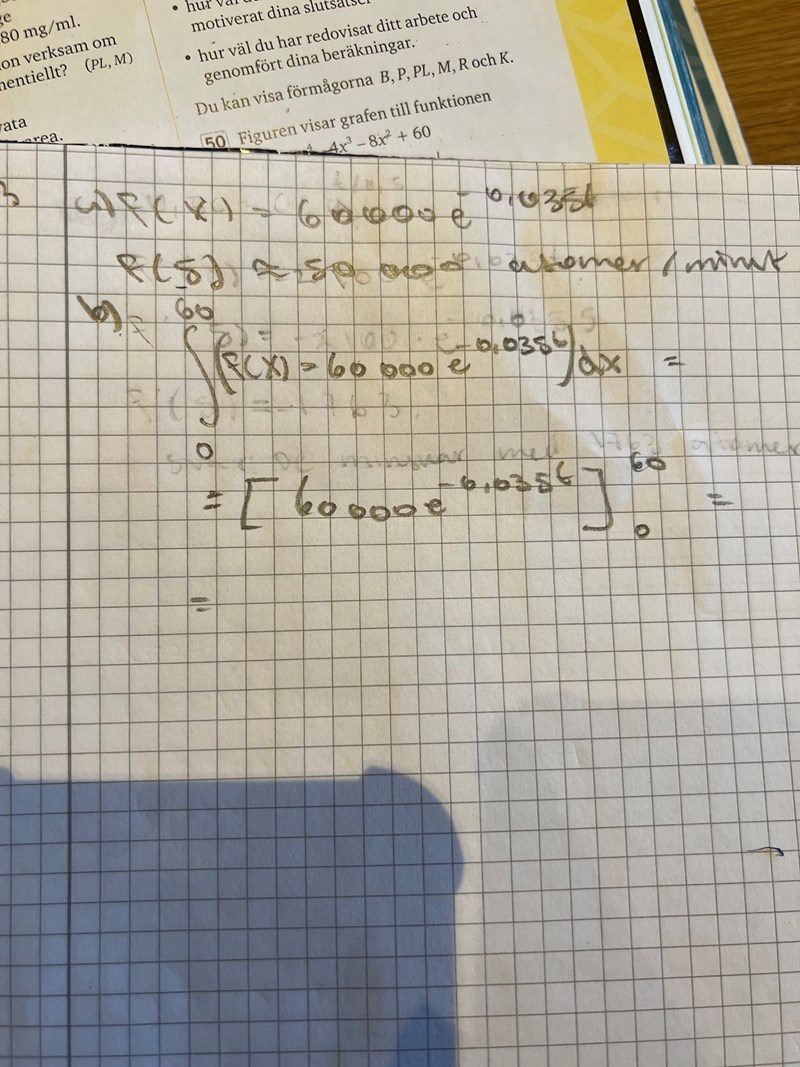 ge
80 mg/ml.
on verksam om
nentiellt? (PL, M)
vata
area.
• hur väl du
motiverat dina slutsatser
• hur väl du har redovisat ditt arbete och
genomfört dina beräkningar.
Du kan visa förmågorna B, P, PL, M, R och K.
50 Figuren visar grafen till funktionen
4x³ – 8x² + 60
a) f(x) = 60000 e^-0,035t
f(5) ≈ 50 000 atomer / minut
b) 60
∫ (f(x) = 60 000 e^-0,035t) dx =
0
= [ 60000 e^-0,035t ] 60 0 =
=